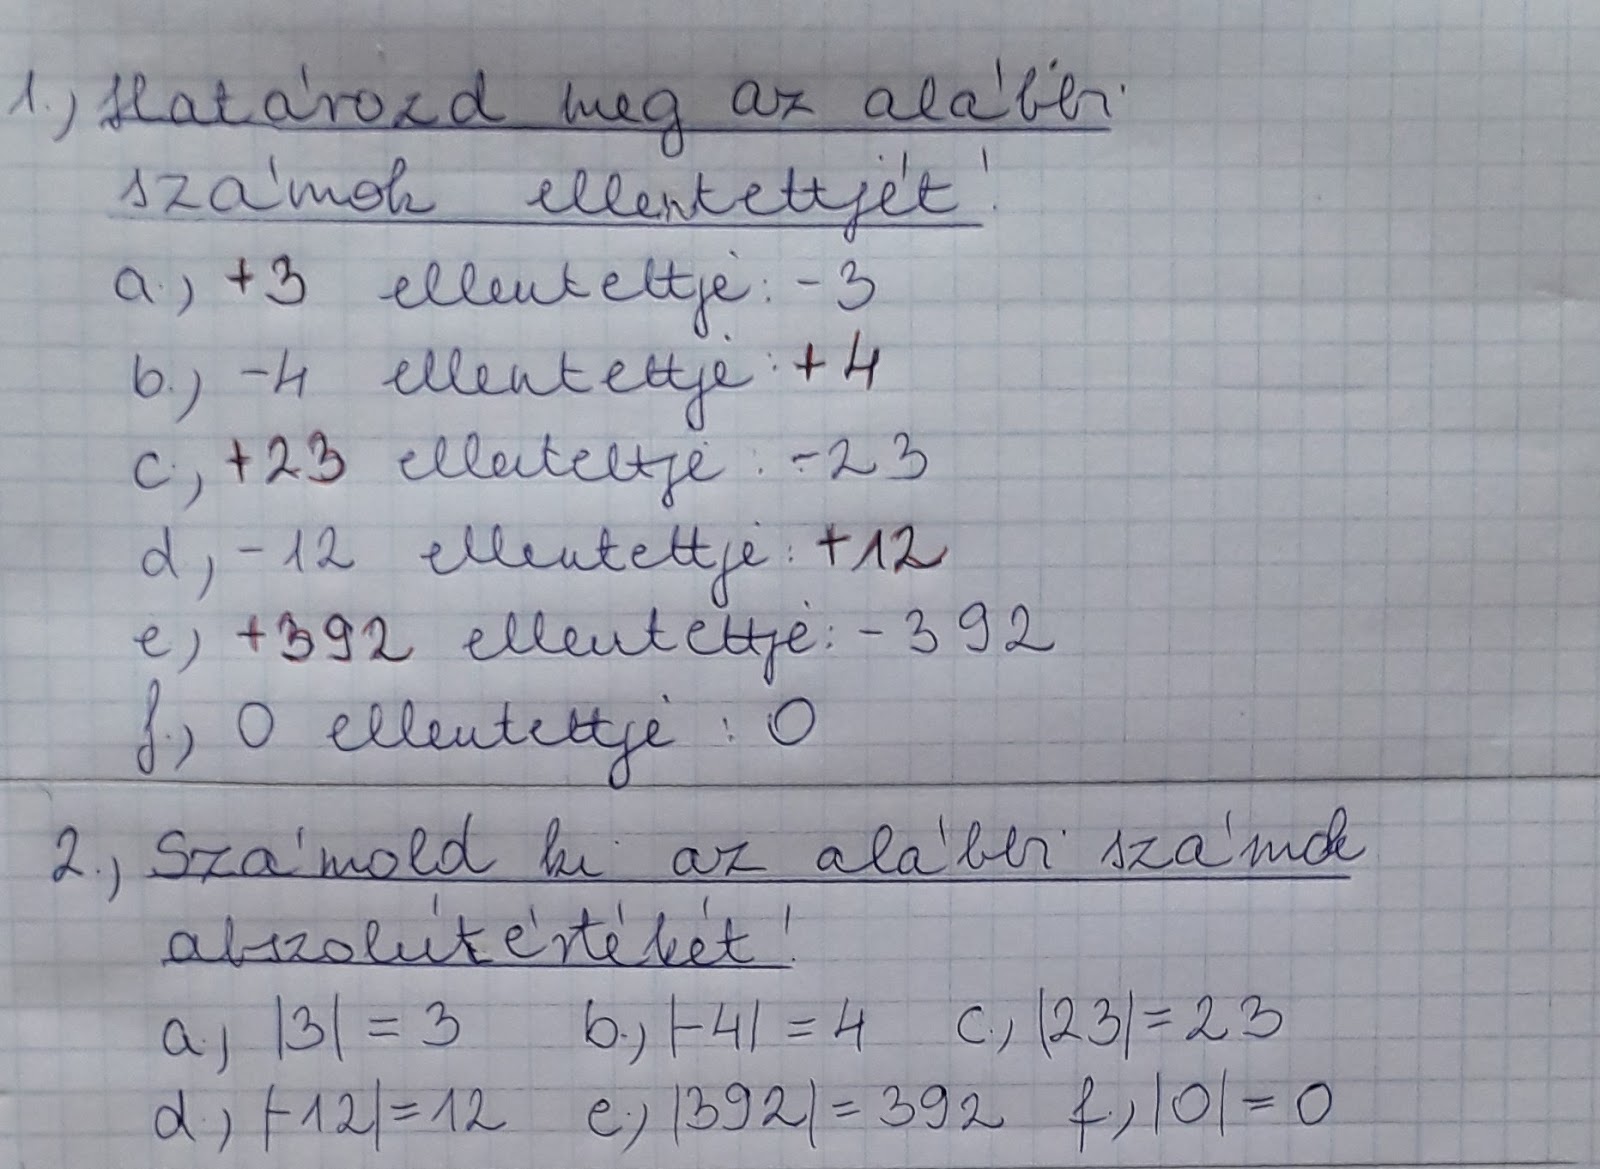 1., Határozd meg az alábbi
számok ellentettjét!
a., +3 ellentettje: -3
b., -4 ellentettje: +4
c., +23 ellentettje: -23
d., -12 ellentettje: +12
e., +392 ellentettje: -392
f., 0 ellentettje: 0
2., Számold ki az alábbi számok
abszolútértékét!
a., |3| = 3 b., |-4| = 4 c., |23| = 23
d., |-12| = 12 e., |392| = 392 f., |0| = 0